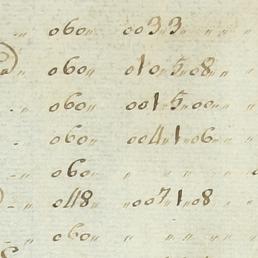 „ 060„ 0033„ „ „
„ 060„ 010„5„08„
„ 060„ 001„5„00„ „
„ 060„ 004„1„06„ „
„ 060„ „ „ „
„ 048„ „007„1„08„
„ 060„ „ „ „ „